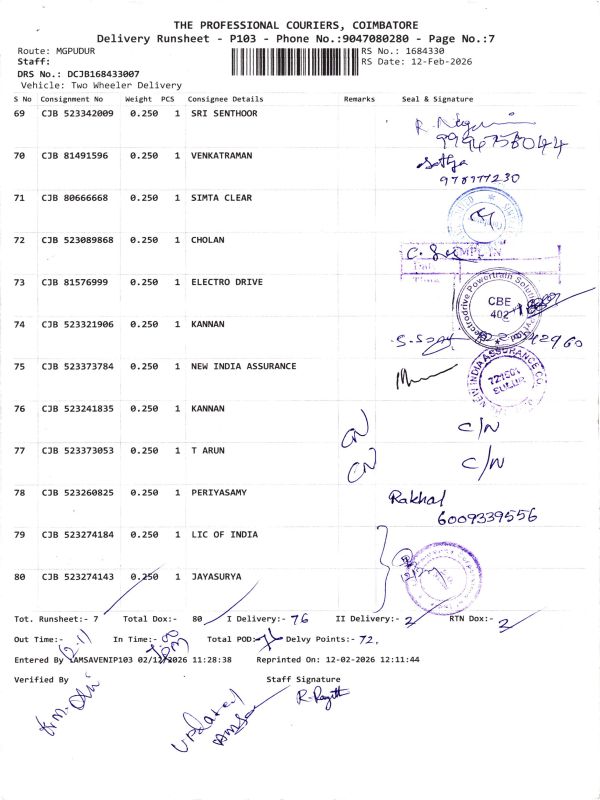 THE PROFESSIONAL COURIERS, COIMBATORE
Delivery Runsheet - P103 - Phone No.:9047080280 - Page No.:7
Route: MGPUDUR
RS No.: 1684330
Staff:
RS Date: 12-Feb-2026
DRS No.: DCJB168433007
Vehicle: Two Wheeler Delivery
S No Consignment No Weight PCS Consignee Details Remarks Seal & Signature
69 CJB 523342009 0.250 1 SRI SENTHOOR
70 CJB 81491596 0.250 1 VENKATRAMAN
71 CJB 80666668 0.250 1 SIMTA CLEAR
72 CJB 523089868 0.250 1 CHOLAN
73 CJB 81576999 0.250 1 ELECTRO DRIVE
Electrodrive Powertrain Solutions
CBE
402
74 CJB 523321906 0.250 1 KANNAN
75 CJB 523373784 0.250 1 NEW INDIA ASSURANCE
THE NEW INDIA ASSURANCE CO
721501
SULUR
76 CJB 523241835 0.250 1 KANNAN CN C/N
77 CJB 523373053 0.250 1 T ARUN CN C/N
78 CJB 523260825 0.250 1 PERIYASAMY Rakhal
6009339556
79 CJB 523274184 0.250 1 LIC OF INDIA
80 CJB 523274143 0.250 1 JAYASURYA
Tot. Runsheet:- 7 Total Dox:- 80 I Delivery:- 76 II Delivery:- 2 RTN Dox:- 2
Out Time:- In Time:- Total POD:- Delvy Points:- 72.
Entered By 02/12/2026 11:28:38 Reprinted On: 12-02-2026 12:11:44
Verified By Staff Signature
Updated